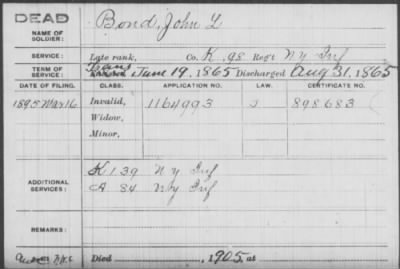 DEAD
NAME OF SOLDIER: Bond, John L
SERVICE: Late rank, Co. K, 98 Reg't N Y Inf
TERM OF SERVICE: Trans June 19, 1865 Discharged Aug 31, 1865
DATE OF FILING. CLASS. APPLICATION NO. LAW. CERTIFICATE NO.
1895 Mar 16 Invalid, 1164993 898683
Widow,
Minor,
ADDITIONAL SERVICES: K 139 N Y Inf
A 84 N Y Inf
REMARKS:
Died , 1905, at